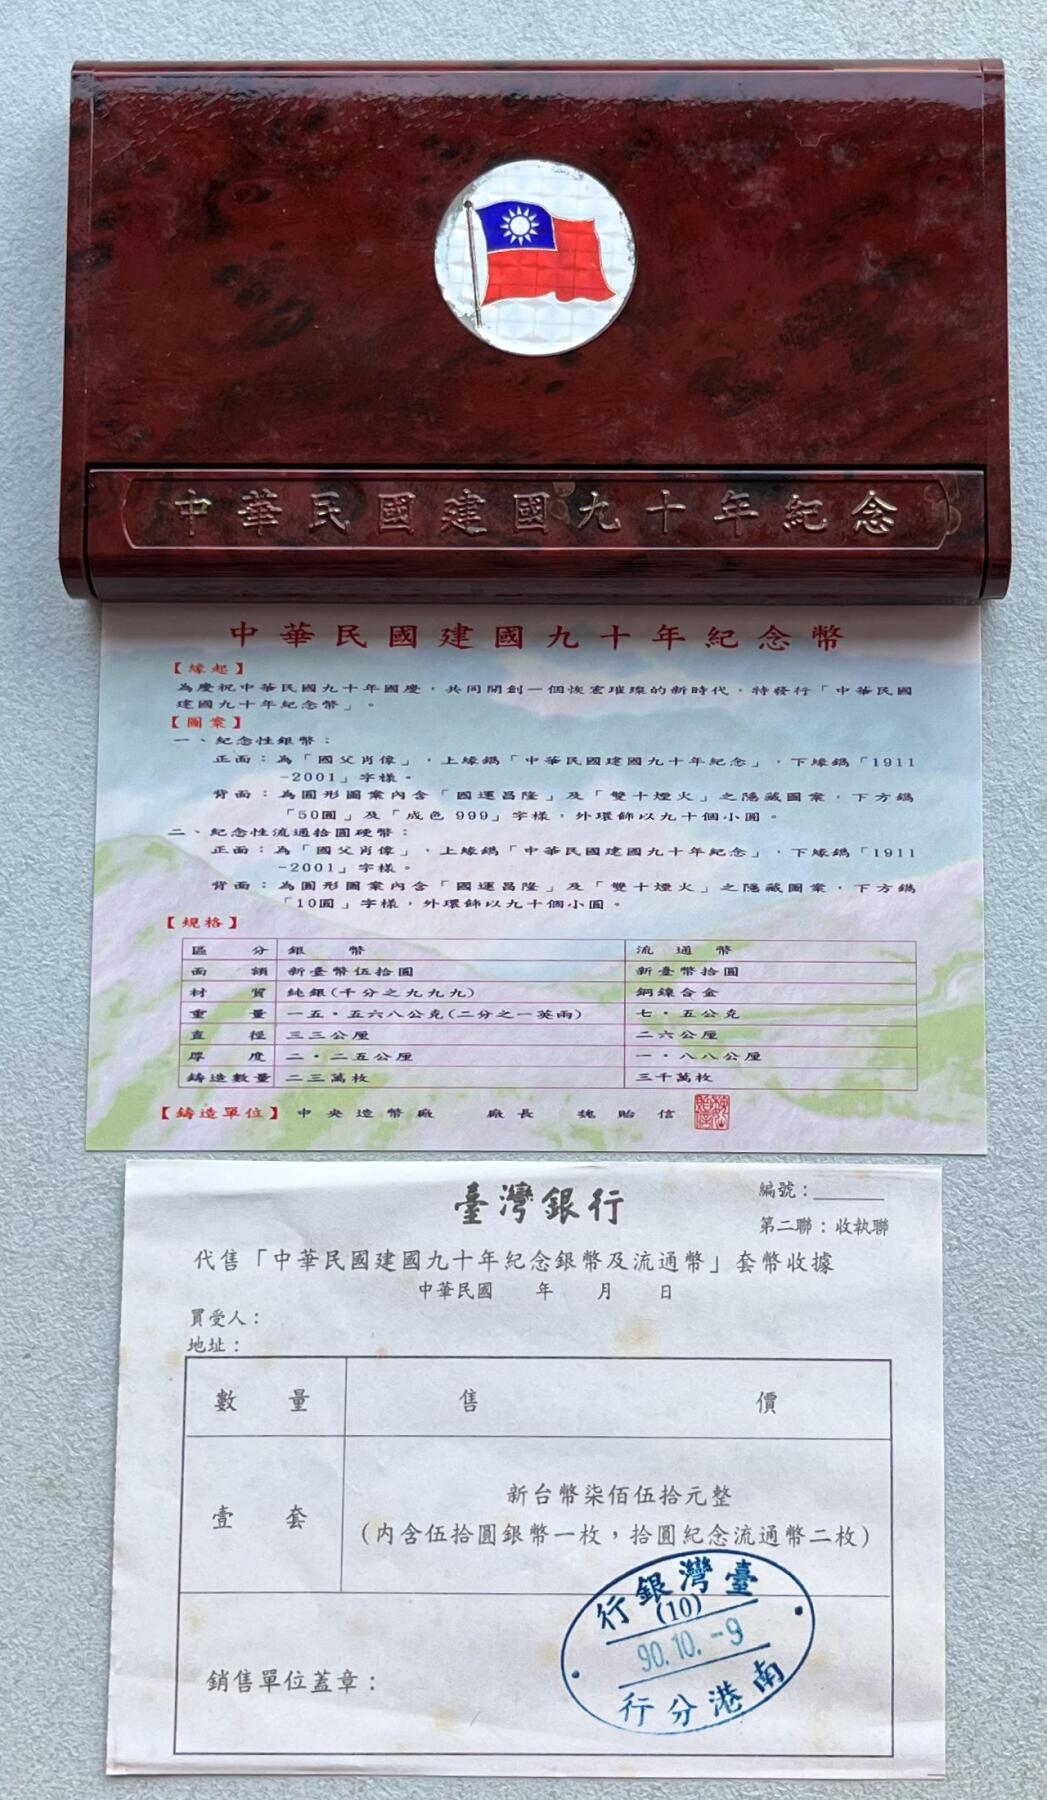 中華民國建國九十年紀念
中華民國建國九十年紀念幣
【緣起】
為慶祝中華民國九十年國慶，共同開創一個恢宏璀璨的新時代，特發行「中華民國
建國九十年紀念幣」。
【圖案】
一、紀念性銀幣：
正面：為「國父肖像」，上緣鐫「中華民國建國九十年紀念」，下緣鐫「1911
-2001」字樣。
背面：為圓形圖案內含「國運昌隆」及「雙十煙火」之隱藏圖案，下方鐫
「50圓」及「成色 999」字樣，外環飾以九十個小圓。
二、紀念性流通拾圓硬幣：
正面：為「國父肖像」，上緣鐫「中華民國建國九十年紀念」，下緣鐫「1911
-2001」字樣。
背面：為圓形圖案內含「國運昌隆」及「雙十煙火」之隱藏圖案，下方鐫
「10圓」字樣，外環飾以九十個小圓。
【規格】
區分 銀幣 流通幣
面額 新臺幣伍拾圓 新臺幣拾圓
材質 純銀(千分之九九九) 銅鎳合金
重量 一五·五六八公克(二分之一英兩) 七·五公克
直徑 三三公厘 二六公厘
厚度 二·二五公厘 一·八八公厘
鑄造數量 二三萬枚 三千萬枚
【鑄造單位】中央造幣廠 廠長 魏貽信
臺灣銀行
編號：
第二聯：收執聯
代售「中華民國建國九十年紀念銀幣及流通幣」套幣收據
中華民國 年 月 日
買受人：
地址：
數量 售價
壹套 新台幣柒佰伍拾元整
（內含伍拾圓銀幣一枚，拾圓紀念流通幣二枚）
銷售單位蓋章：
臺灣銀行
(10)
90.10.-9
南港分行